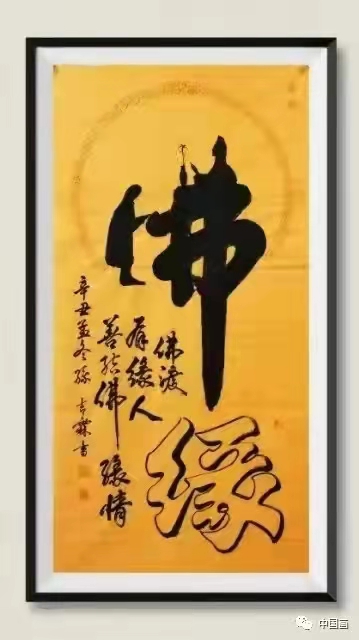 佛
缘
佛渡
有缘人
善结佛缘情
辛丑孟冬孙吉霖书
中国画